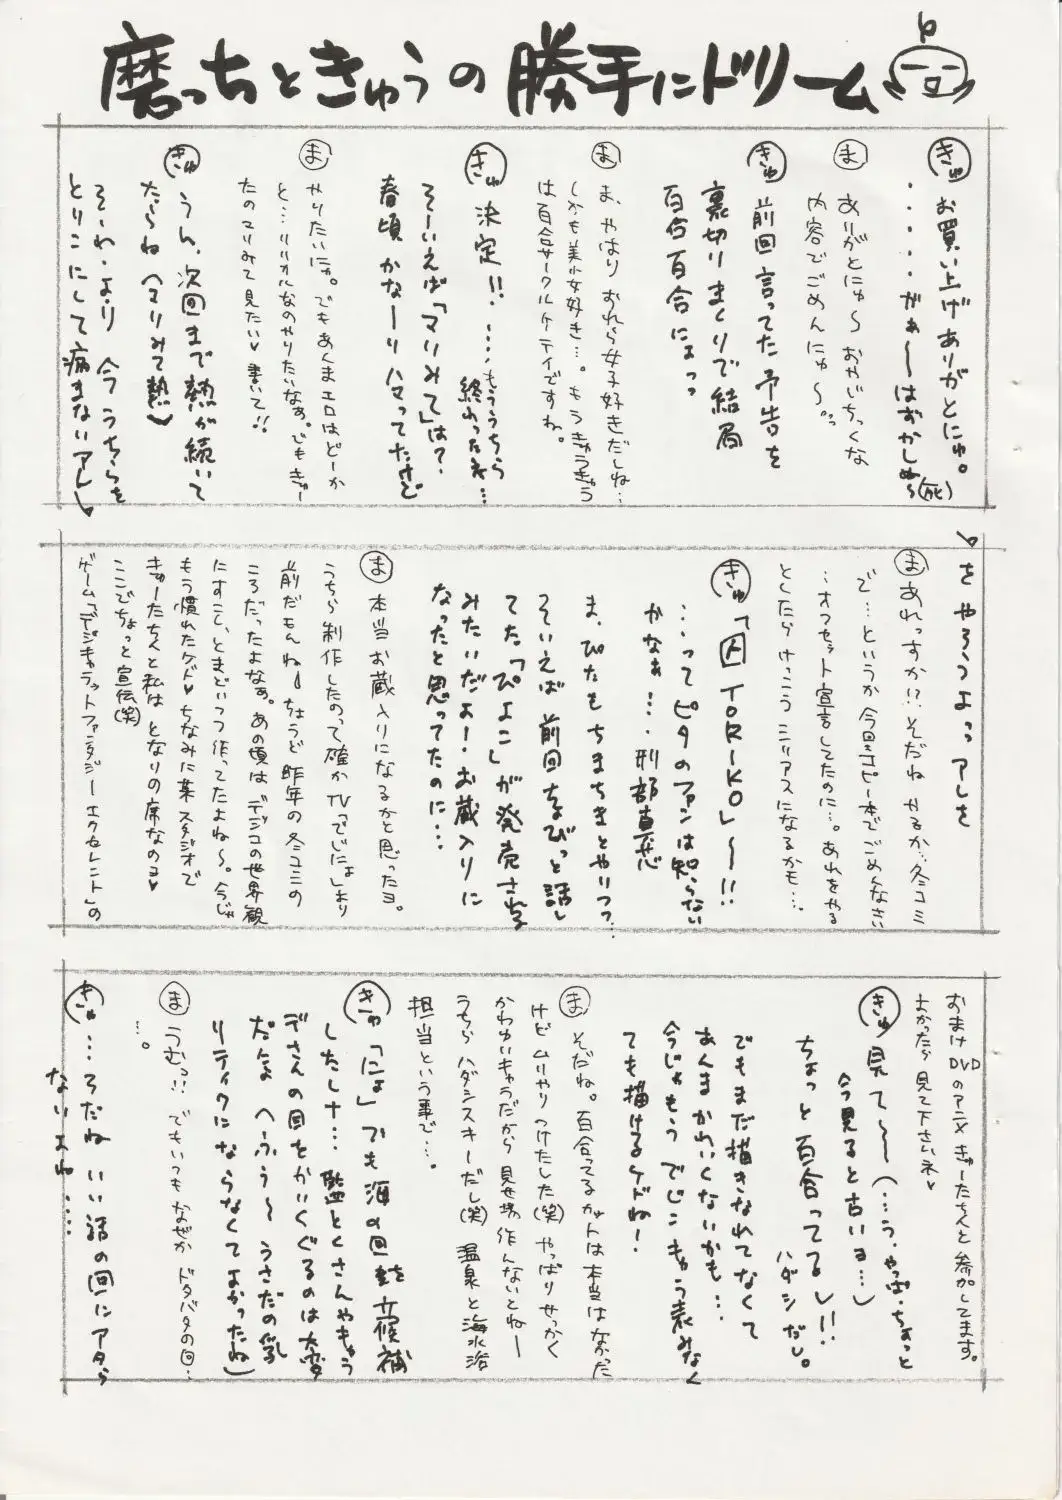 磨っちときゅうの勝手にドリーム
きゅ お買い上げありがとにゅ。
・・・・がぁ〜〜はずかしぬ〜(死)
ま ありがとにゅ〜 おやじちっくな
内容でごめんにゅ〜。
きゅ 前回言ってた予告を
裏切りまくりで結局
百合百合にょっ
ま ま、やはり おれら女子好きだしね…
しかも美少女好き…。もうきゅうきゅう
は百合サークルケテイですね。
きゅ 決定!! …もううちら
終わったネ…
そーいえば「マリみて」は?
春頃かなーりハマってたけど
ま やりたいにゃ。でもあくまエロはどーか
と…リリカルなのやりたいなぁ。でもきゅー
たのマリみて見たい♥ 書いて!!
きゅ うん、次回まで熱が続いて
たらね(マリみて熱)
そーれ・より 今うちらを
とりこにして病まないアレ♥
をやろうよっ アレを
ま あれっすか!? そだね やるか…冬コミ
で…というか今回コピー本でごめんなさい
…オフセット宣言してたのに…。あれをやる
としたら けっこうシリアスになるかも…。
きゅ 「囚 TORIKO」〜!!
…ってピタのファンは知らない
かなぁ… 刑部真芯
ま、ぴたもちまちまとやりつつ…
そいえば 前回ちょびっと話し
てた「ぴよこ」が発売される
みたいだよー・お蔵入りに
なったと思ってたのに…
ま 本当お蔵入りになるかと思ったヨ。
うちら制作したのって確かTV「でじにょ」より
前だもんね→ちょうど昨年の冬コミの
ころだったよなぁ。あの頃は デジコの世界観
にすごくとまどいつつ作ってたよね〜。今じゃ
もう慣れたケド♥ ちなみに葉スタジオで
きゅーたちんと私は となりの席なのヨ♥
ここでちょっと宣伝(笑)
ゲーム「デジキャラットファンタジー エクセレント」の
おまけDVDのアニメ きゅーたちんと参加してます。
よかったら見て下さいネ♥
きゅ 見て〜〜(…う・やっぱ・ちょっと
今見ると古いヨ…)
ちょっと百合ってるし!!
ハダシだし。
でもまだ描きなれてなくて
あんまかわいくないかも…
今じゃもうでじこキャラ表みなく
ても描けるケドねー
ま そだね。百合ってるカットは本当はなかった
けどムリやりつけたした(笑) やっぱりせっかく
かわゆいキャラだから見せ場 作んないとねー
うちら ハダシスキーだし(笑) 温泉と海水浴
担当という事で…。
きゅ 「にょ」でも海の回を立候補
したし†… 監とくさんやキャラ
デさんの目をかいくぐるのは大変
だにょ(ふぅ〜うさだの乳
リーティクにならなくてよかったね)
ま うむっ!! でもいつもなぜか ドタバタの回…
…。
きゅ …そだね いい話の回にアタら
ないよね……